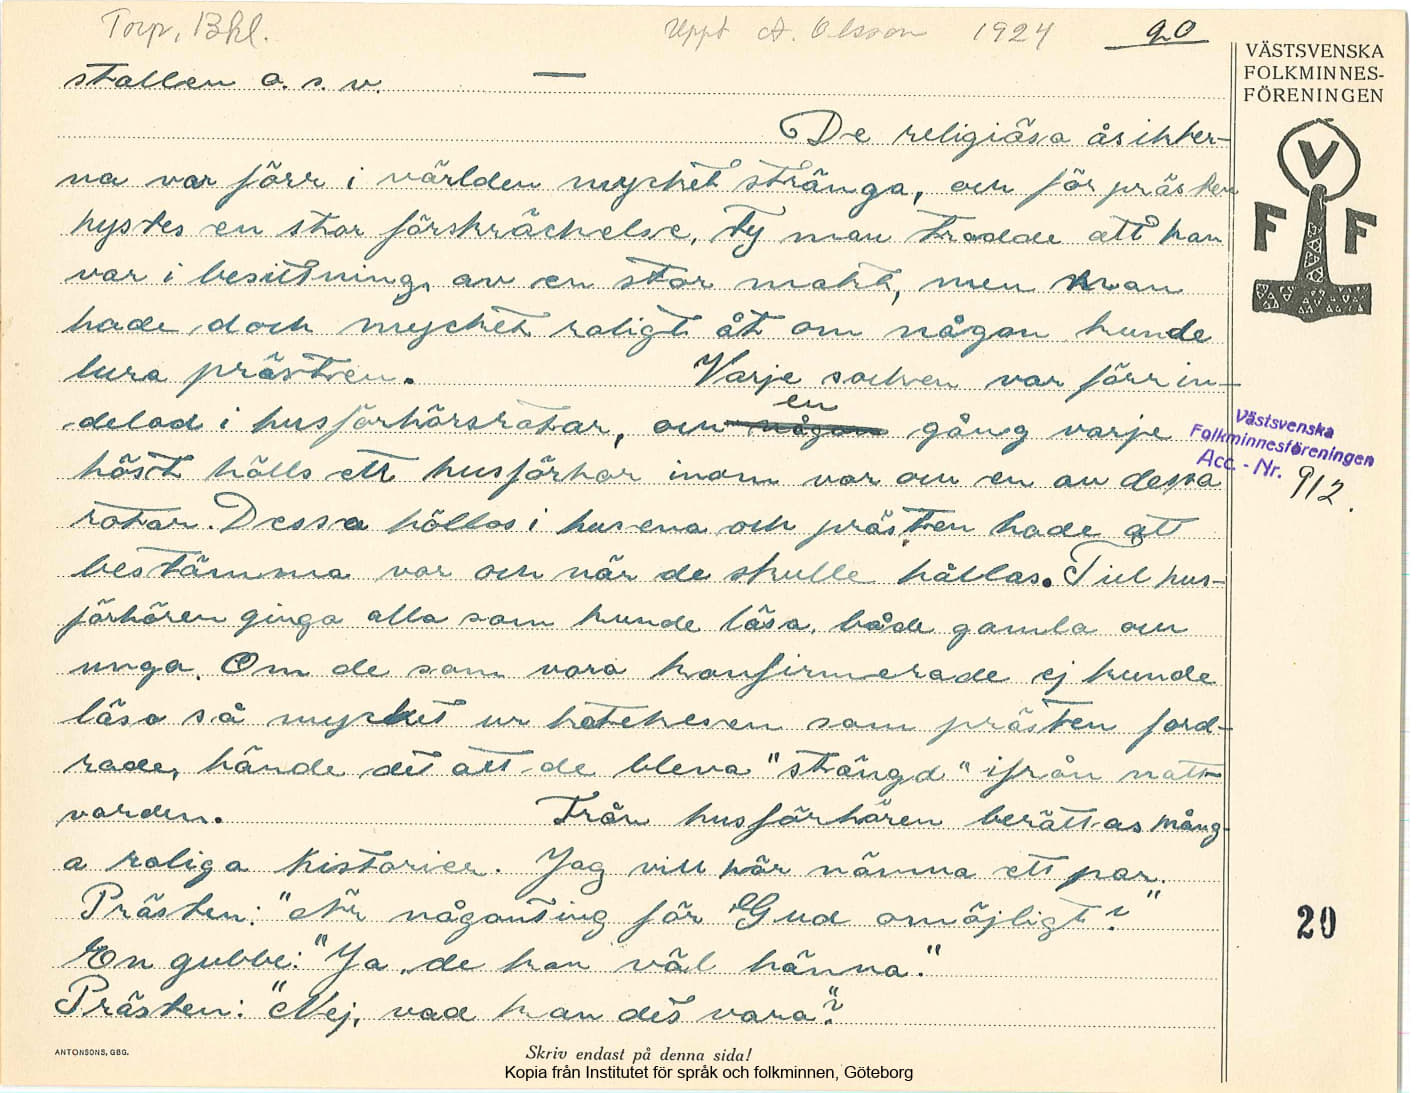 Torp, Bhl. Uppt A. Olsson 1924 20
VÄSTSVENSKA
FOLKMINNES-
FÖRENINGEN
V
F F
stallen o. s. v. —
De religiösa åsikter-
na var förr i världen mycket stränga, och för prästen
hystes en stor förskräckelse, ty man trodde att han
var i besittning av en stor makt, men man
hade doch mycket roligt åt om någon kunde
lura prästen. Varje socken var förr in-
delad i husförhörsrotar, och någon en gång varje
höst hölls ett husförhör inom var och en av dessa
rotar. Dessa höllos i husena och prästen hade att
bestämma var och när de skulle hållas. Till hus-
förhören ginga alla som kunde läsa, både gamla och
unga. Om de som vora konfirmerade ej kunde
läsa så mycket ur katekesen som prästen ford-
rade, hände det att de bleva "strängd" ifrån natt-
varden. Från husförhören berättas mång-
a roliga historier. Jag vill här nämna ett par.
Prästen: "Är någonting för Gud omöjligt?"
En gubbe: "Ja, de kan väl hänna."
Prästen: "Nej, vad kan det vara?"
Västsvenska
Folkminnesföreningen
Acc. - Nr. 912.
20
ANTONSONS, GBG.
Skriv endast på denna sida!
Kopia från Institutet för språk och folkminnen, Göteborg